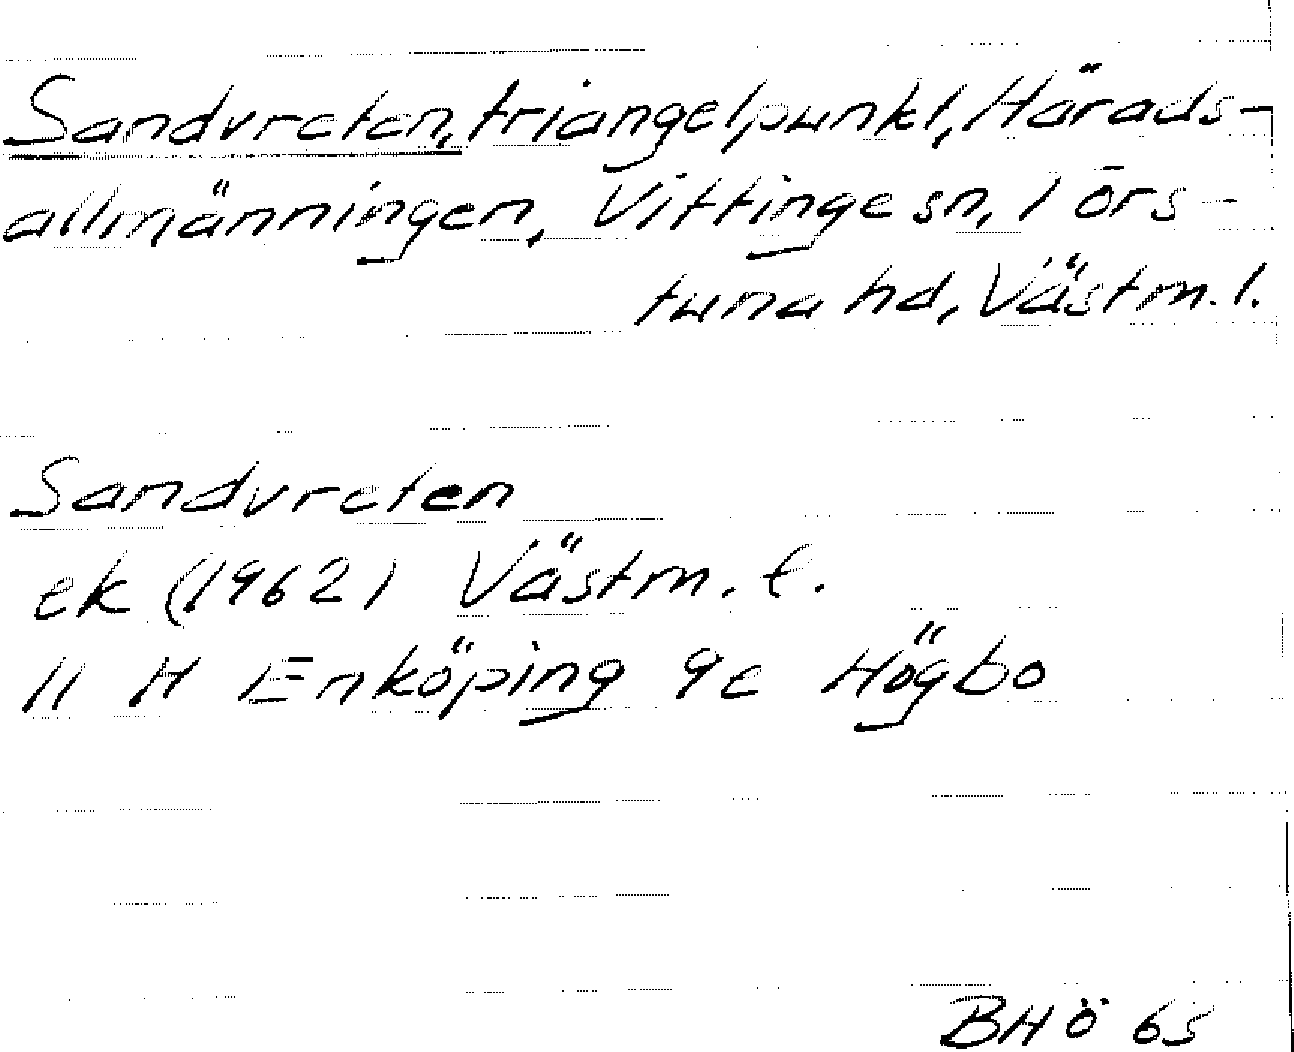 Sandvreten, triangelpunkt, Härads-
allmänningen, Vittinge sn, Törs-
tuna hd, Västm. l.
Sandvreten
ek (1962) Västm. l.
11 H Enköping 9c Högbo
BHÖ 65